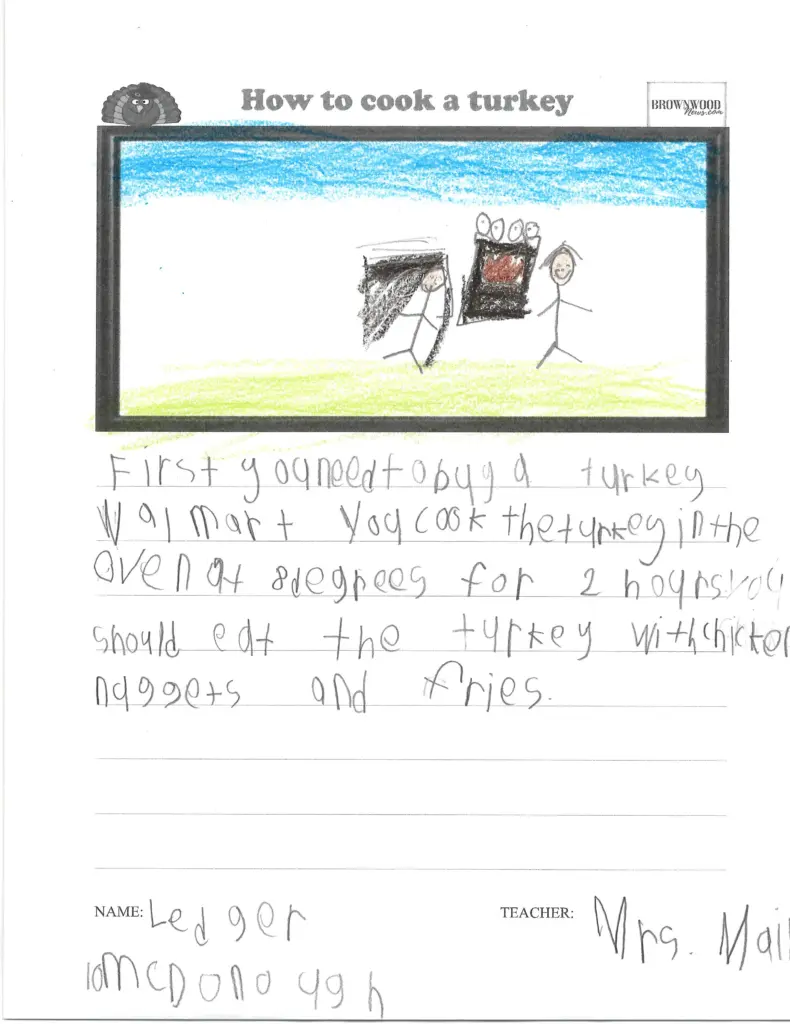 How to cook a turkey
BROWNWOOD
News.com
First you need to buy a turkey
Walmart You cook the turkey in the
oven at 8 degrees for 2 hours. You
should eat the turkey with chicken
nuggets and fries.
NAME: Ledger TEACHER: Mrs. Mail
McDonough